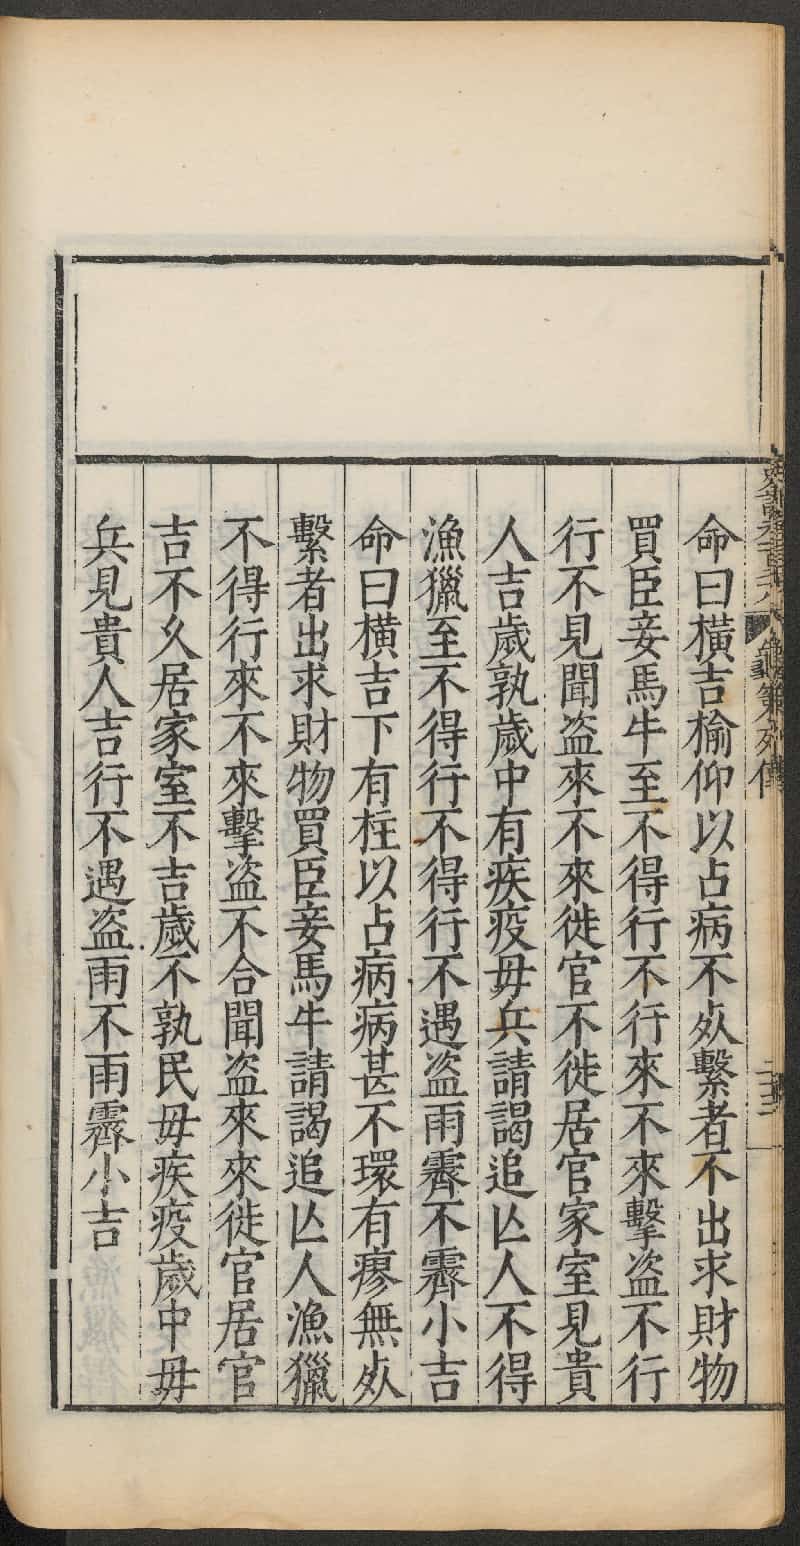 史記卷一百二十八 龜策列傳 二十三
命曰橫吉榆仰以占病不死繫者不出求財物
買臣妾馬牛至不得行不行來不來擊盜不行
行不見聞盜來不來徙官不徙居官家室見貴
人吉歲孰歲中有疾疫毋兵請謁追亾人不得
漁獵至不得行不得行不遇盜雨霽不霽小吉
命曰橫吉下有柱以占病病甚不環有瘳無死
繫者出求財物買臣妾馬牛請謁追亾人漁獵
不得行來不來擊盜不合聞盜來來徙官居官
吉不久居家室不吉歲不孰民毋疾疫歲中毋
兵見貴人吉行不遇盜雨不雨霽小吉